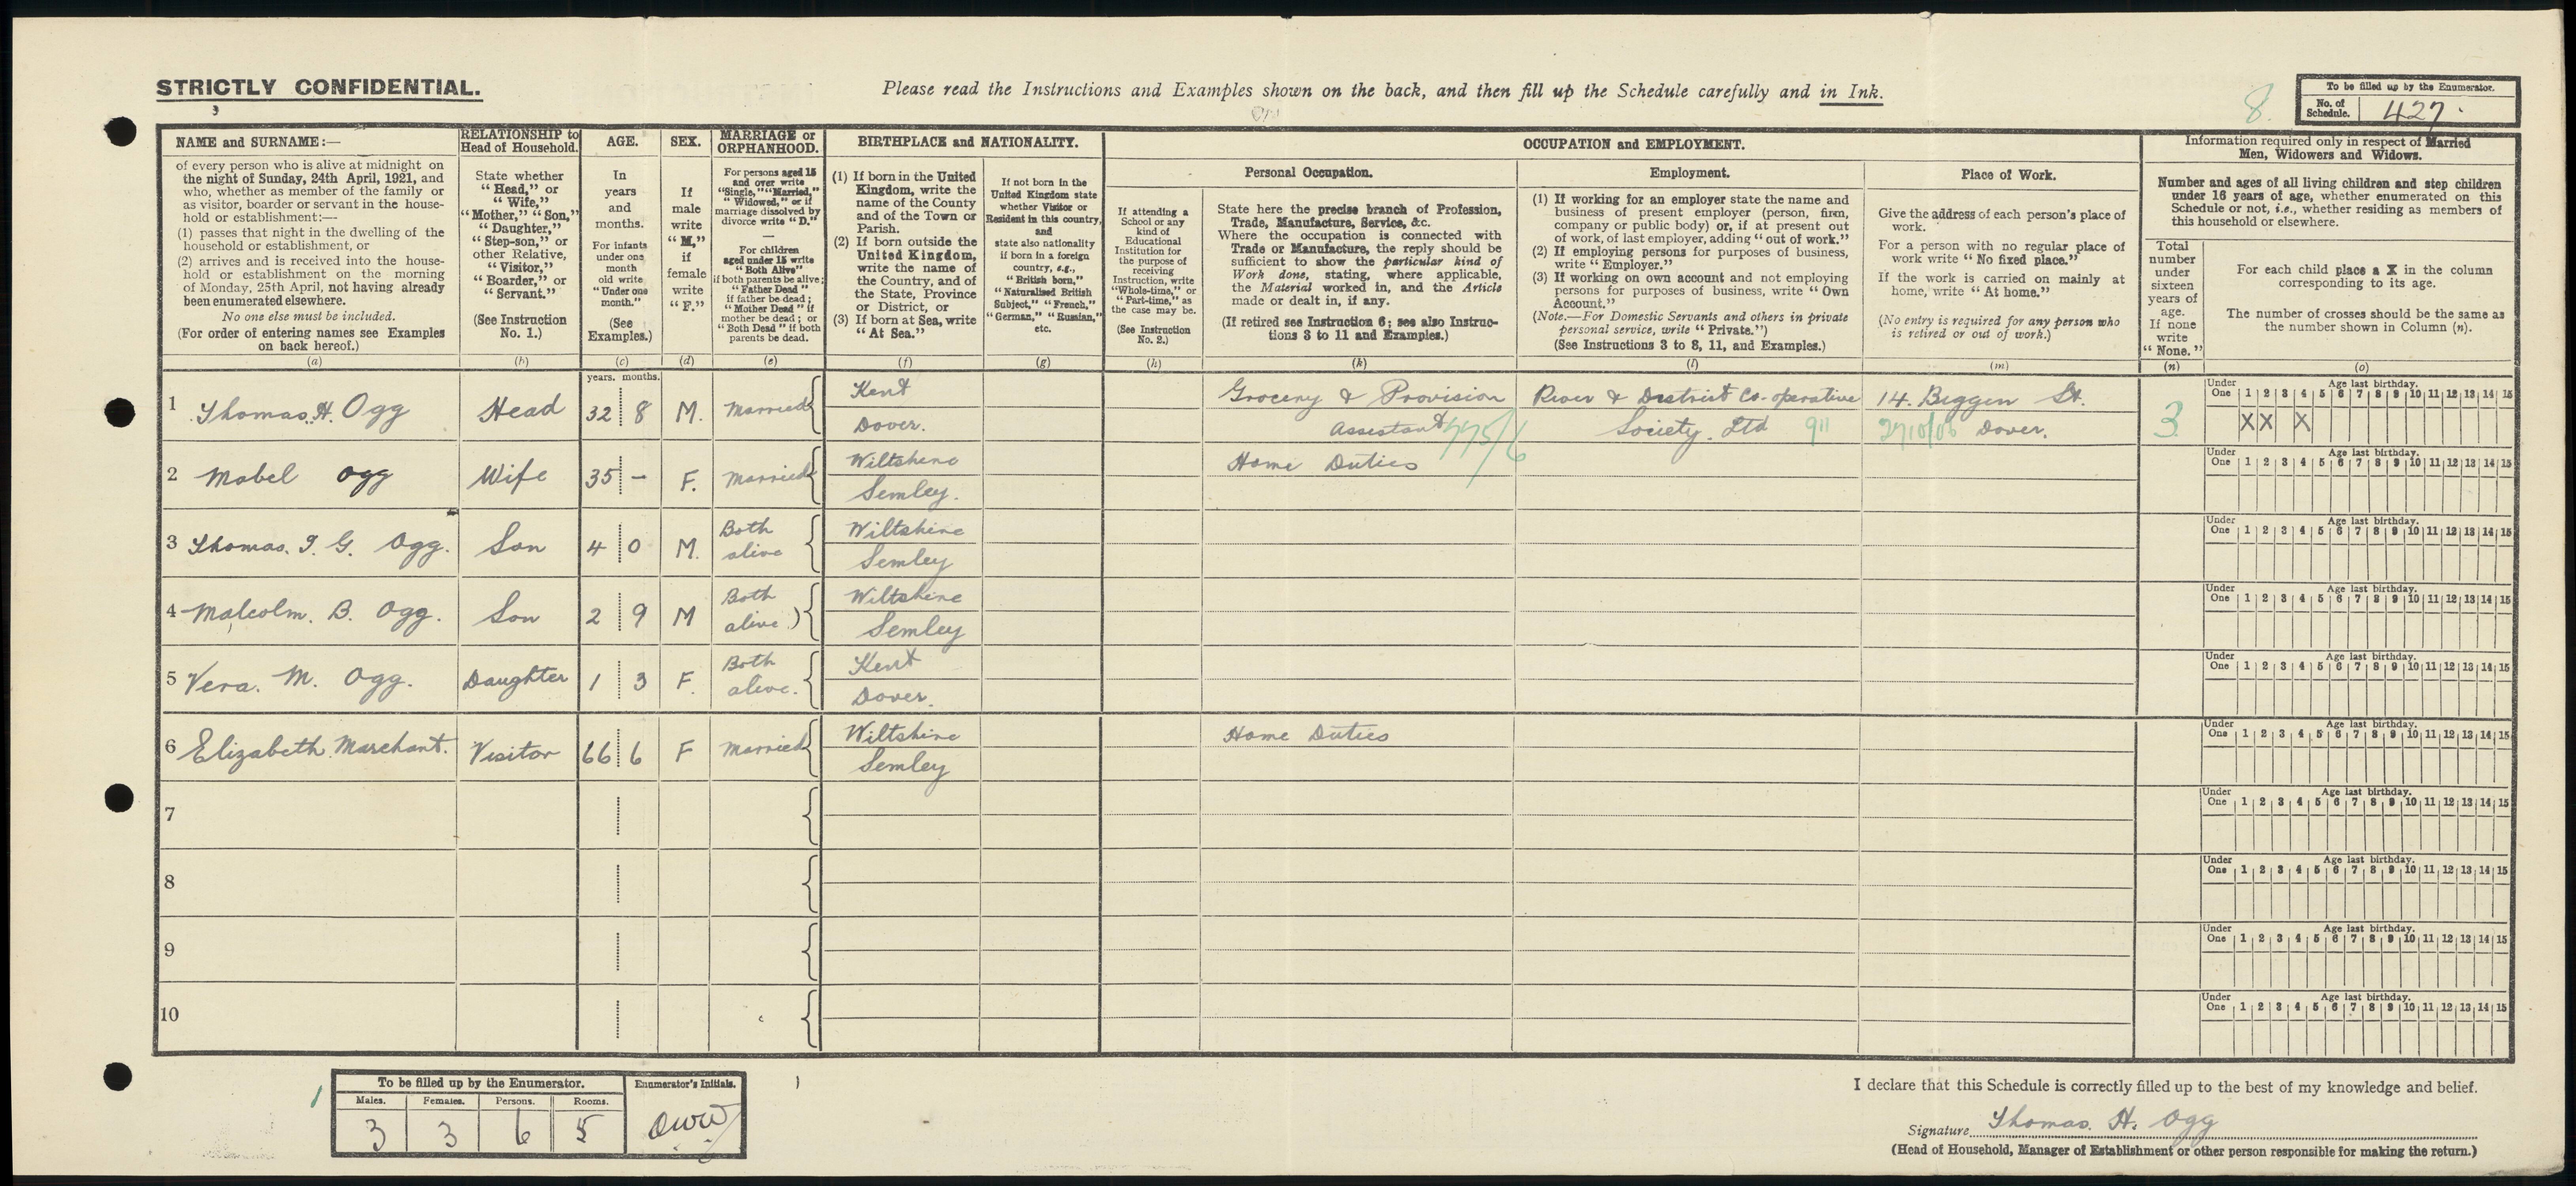 STRICTLY CONFIDENTIAL.
Please read the Instructions and Examples shown on the back, and then fill up the Schedule carefully and in Ink.
8.
To be filled up by the Enumerator.
No. of Schedule. 427.
NAME and SURNAME:—
of every person who is alive at midnight on
the night of Sunday, 24th April, 1921, and
who, whether as member of the family or
as visitor, boarder or servant in the house-
hold or establishment:—
(1) passes that night in the dwelling of the
household or establishment, or
(2) arrives and is received into the house-
hold or establishment on the morning
of Monday, 25th April, not having already
been enumerated elsewhere.
No one else must be included.
(For order of entering names see Examples
on back hereof.)
(a)
RELATIONSHIP to
Head of Household.
State whether
"Head," or
"Wife,"
"Mother," "Son,"
"Daughter,"
"Step-son," or
other Relative,
"Visitor,"
"Boarder," or
"Servant."
(See Instruction
No. 1.)
(b)
AGE.
In
years
and
months.
For infants
under one
month
old write
"Under one
month."
(See
Examples.)
(c)
SEX.
If
male
write
"M,"
if
female
write
"F."
(d)
MARRIAGE or
ORPHANHOOD.
For persons aged 15
and over write
"Single," "Married,"
"Widowed," or if
marriage dissolved by
divorce write "D."
—
For children
aged under 15 write
"Both Alive"
if both parents be alive;
"Father Dead"
if father be dead;
"Mother Dead" if
mother be dead; or
"Both Dead" if both
parents be dead.
(e)
BIRTHPLACE and NATIONALITY.
(1) If born in the United
Kingdom, write the
name of the County
and of the Town or
Parish.
(2) If born outside the
United Kingdom,
write the name of
the Country, and of
the State, Province
or District, or
(3) If born at Sea, write
"At Sea."
(f)
If not born in the
United Kingdom state
whether Visitor or
Resident in this country,
and
state also nationality
if born in a foreign
country, e.g.,
"British born,"
"Naturalised British
Subject," "French,"
"German," "Russian,"
etc.
(g)
OCCUPATION and EMPLOYMENT.
If attending a
School or any
kind of
Educational
Institution for
the purpose of
receiving
Instruction, write
"Whole-time," or
"Part-time," as
the case may be.
(See Instruction
No. 2.)
(h)
Personal Occupation.
State here the precise branch of Profession,
Trade, Manufacture, Service, &c.
Where the occupation is connected with
Trade or Manufacture, the reply should be
sufficient to show the particular kind of
Work done, stating, where applicable,
the Material worked in, and the Article
made or dealt in, if any.
(If retired see Instruction 6; see also Instruc-
tions 3 to 11 and Examples.)
(k)
Employment.
(1) If working for an employer state the name and
business of present employer (person, firm,
company or public body) or, if at present out
of work, of last employer, adding "out of work."
(2) If employing persons for purposes of business,
write "Employer."
(3) If working on own account and not employing
persons for purposes of business, write "Own
Account."
(Note.—For Domestic Servants and others in private
personal service, write "Private.")
(See Instructions 3 to 8, 11, and Examples.)
(l)
Place of Work.
Give the address of each person's place of
work.
For a person with no regular place of
work write "No fixed place."
If the work is carried on mainly at
home, write "At home."
(No entry is required for any person who
is retired or out of work.)
(m)
Information required only in respect of Married
Men, Widowers and Widows.
Number and ages of all living children and step children
under 16 years of age, whether enumerated on this
Schedule or not, i.e., whether residing as members of
this household or elsewhere.
Total
number
under
sixteen
years of
age.
If none
write
"None."
(n)
For each child place a X in the column
corresponding to its age.
The number of crosses should be the same as
the number shown in Column (n).
(o)
years. months.
Under One Age last birthday. 1 2 3 4 5 6 7 8 9 10 11 12 13 14 15
1 Thomas. H. Ogg Head 32 8 M. Married Kent Grocery & Provision River & District Co-operative 14. Biggin St. 3 X X X
Dover. Assistant 775/6 Society. Ltd 911 Dover.
Under One Age last birthday. 1 2 3 4 5 6 7 8 9 10 11 12 13 14 15
2 Mabel Ogg Wife 35 - F. Married Wiltshire Home Duties
Semley.
Under One Age last birthday. 1 2 3 4 5 6 7 8 9 10 11 12 13 14 15
3 Thomas. I. G. Ogg. Son 4 0 M. Both alive Wiltshire
Semley
Under One Age last birthday. 1 2 3 4 5 6 7 8 9 10 11 12 13 14 15
4 Malcolm. B. Ogg. Son 2 9 M Both alive Wiltshire
Semley
Under One Age last birthday. 1 2 3 4 5 6 7 8 9 10 11 12 13 14 15
5 Vera. M. Ogg. Daughter 1 3 F. Both alive. Kent
Dover.
Under One Age last birthday. 1 2 3 4 5 6 7 8 9 10 11 12 13 14 15
6 Elizabeth. Marchant. Visitor 66 6 F Married Wiltshire Home Duties
Semley
Under One Age last birthday. 1 2 3 4 5 6 7 8 9 10 11 12 13 14 15
7
Under One Age last birthday. 1 2 3 4 5 6 7 8 9 10 11 12 13 14 15
8
Under One Age last birthday. 1 2 3 4 5 6 7 8 9 10 11 12 13 14 15
9
Under One Age last birthday. 1 2 3 4 5 6 7 8 9 10 11 12 13 14 15
10
Under One Age last birthday. 1 2 3 4 5 6 7 8 9 10 11 12 13 14 15
To be filled up by the Enumerator. Enumerator's Initials.
Males. Females. Persons. Rooms.
3 3 6 5 OWW
I declare that this Schedule is correctly filled up to the best of my knowledge and belief.
Signature Thomas. H. Ogg
(Head of Household, Manager of Establishment or other person responsible for making the return.)